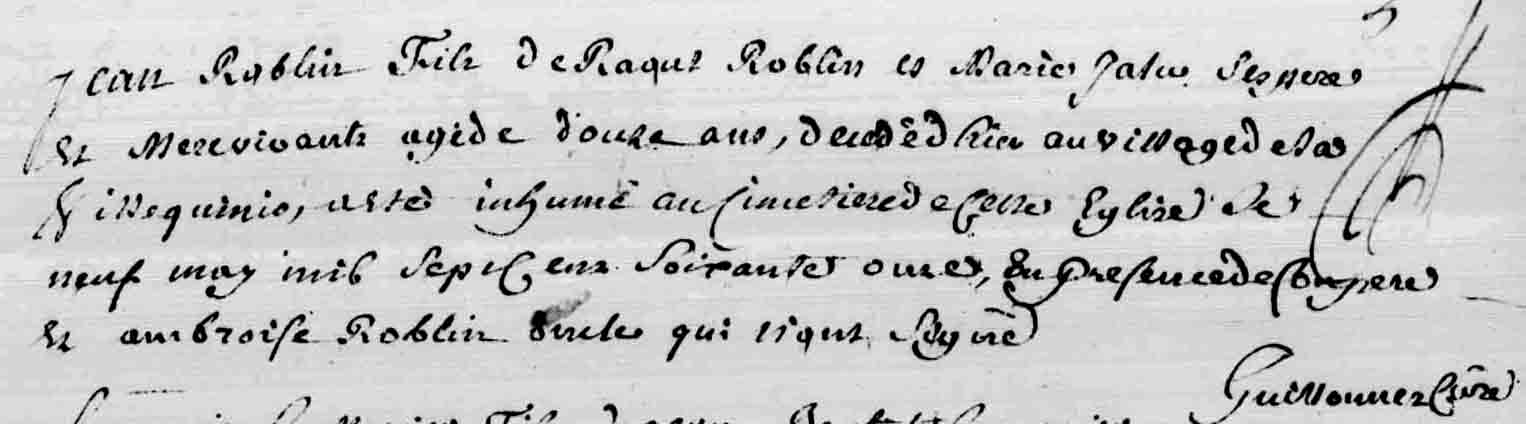 Jean Roblin Fils de Raout Roblin et Marie Jatu Ses pere
Et Mere vivants agé de douze ans, decedé d hier au village de la
Villeguinio, a esté inhumé au Cimetiere de Cette Eglise Le
neuf may mil Sept Cent Soixante onze, En presence de Son pere
Et ambroise Roblin oncle qui n'ont Signé
Guillonnet Curé